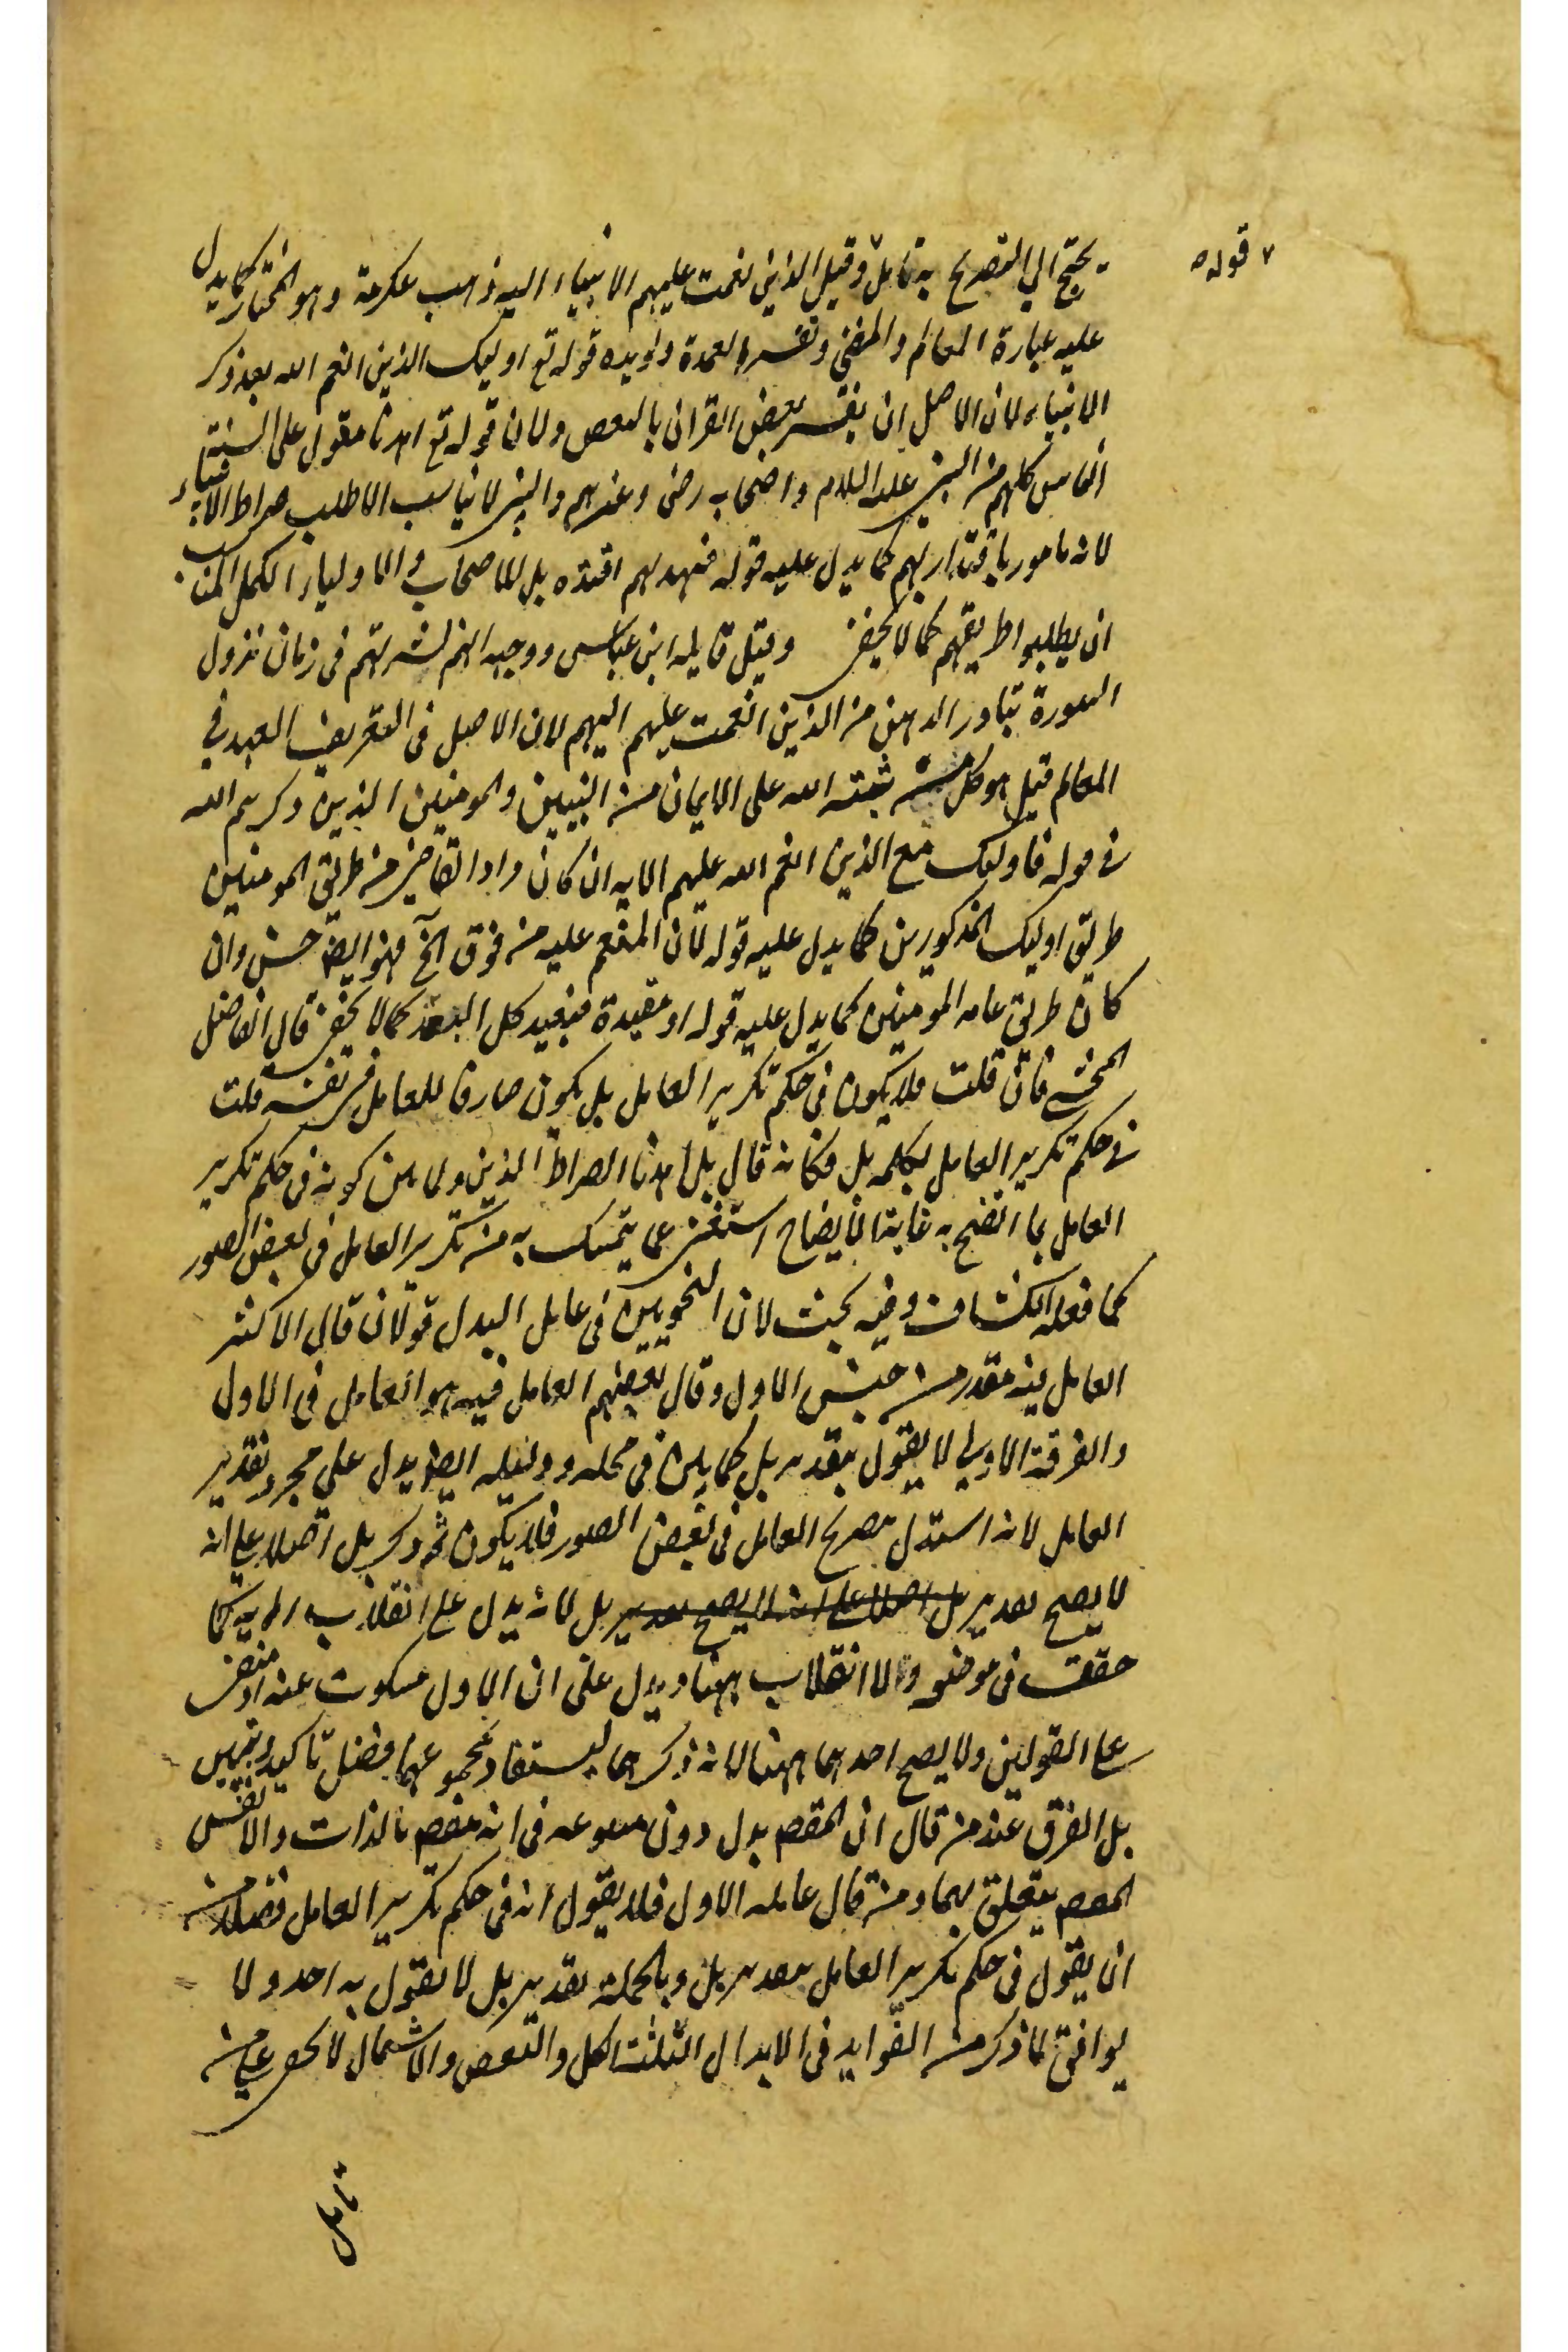 قوله
يحتج الي التصريح به تامل وقيل الذين نعمت عليهم الانبياء اليه ذهب عكرمة وهو المختار كما يدل
عليه عبارة المعالم والمغني وتفسير العمدة ويويده قوله تع اوليك الذين انعم الله بعد ذكر
الانبياء لان الاصل ان يفسر بعض القران بالبعض ولان قوله تع اهدنا مقول على السنة
الناس كلهم من النبي عليه السلام واصحابه رض وغيرهم والنبي لا يناسب الا طلب صراط الانبياء
لانه مامور باقتدار بهم كما يدل عليه قوله فبهديهم اقتده بل للاصحاب والاولياء الكمل المناسب
ان يطلبوا طريقهم كما لا يخفى وقيل قايله ابن عباس ووجهه انهم لشهرتهم في زمان نزول
السورة تبادر الذهن من الذين انعمت عليهم اليهم لان الاصل في التعريف العهد في
المعالم قيل هو كل من ثبته الله على الايمان من النبيين والمومنين الذين ذكرهم الله
في قوله فاوليك مع الذين انعم الله عليهم الايه ان كان مراد القاضي من طريق المومنين
طريق اوليك المذكورين كما يدل عليه قوله لان المنعم عليه من فوق الخ فهو ايضا حسن وان
كان طريق عامه المومنين كما يدل عليه قوله او مقيدة فبعيد كل البعد كما لا يخفى قال الفاضل
المحشي فان قلت فلا يكون في حكم تكرير العامل بل يكون صارفا للعامل عن نفسه قلت
في حكم تكرير العامل بكلمه بل فكانه قال بل اهدنا الصراط الذين ولما بين كونه في حكم تكرير
العامل بما اتضح به غاية الايضاح استغنى عما يتمسك به من تكرير العامل في بعض الصور
كما فعله الكشاف وفيه بحث لان النحويين في عامل البدل قولان قال الاكثر
العامل فيه مقدر من جنس الاول وقال بعضهم العامل فيه هو العامل في الاول
والفرقة الاولى لا يقول بتقدير بل كما بين في محله ودليله ايضا يدل على مجرد تقدير
العامل لانه استدل بتصريح العامل في بعض الصور فلا يكون ثمه ذكر بل اصلا على انه
لا يصح تقدير بل اصلا على انه لا يصح تقدير بل لانه يدل على انقلاب كما
حققت في موضعه ولا انقلاب ههنا ويدل على ان الاول مسكوت عنه او منفي
على القولين ولا يصح احدهما ههنا لانه ذكرهما ليستفاد بمجموعهما فضل تاكيد وتبيين
بل الفرق عند من قال ان المقصم بدل دون متبوعه في انه مقصم بالذات والا فنفس
المقصم يتعلق بهما ومن قال عامله الاول فلا يقول انه في حكم تكرير العامل فضلا من
ان يقول في حكم تكرير العامل بتقدير بل وبالجمله تقدير بل لا يقول به احد ولا
يوافق لما ذكر من الفوايد في الابدال الثلثة الكل والبعض والاشتمال لا يخفى على من
تامل